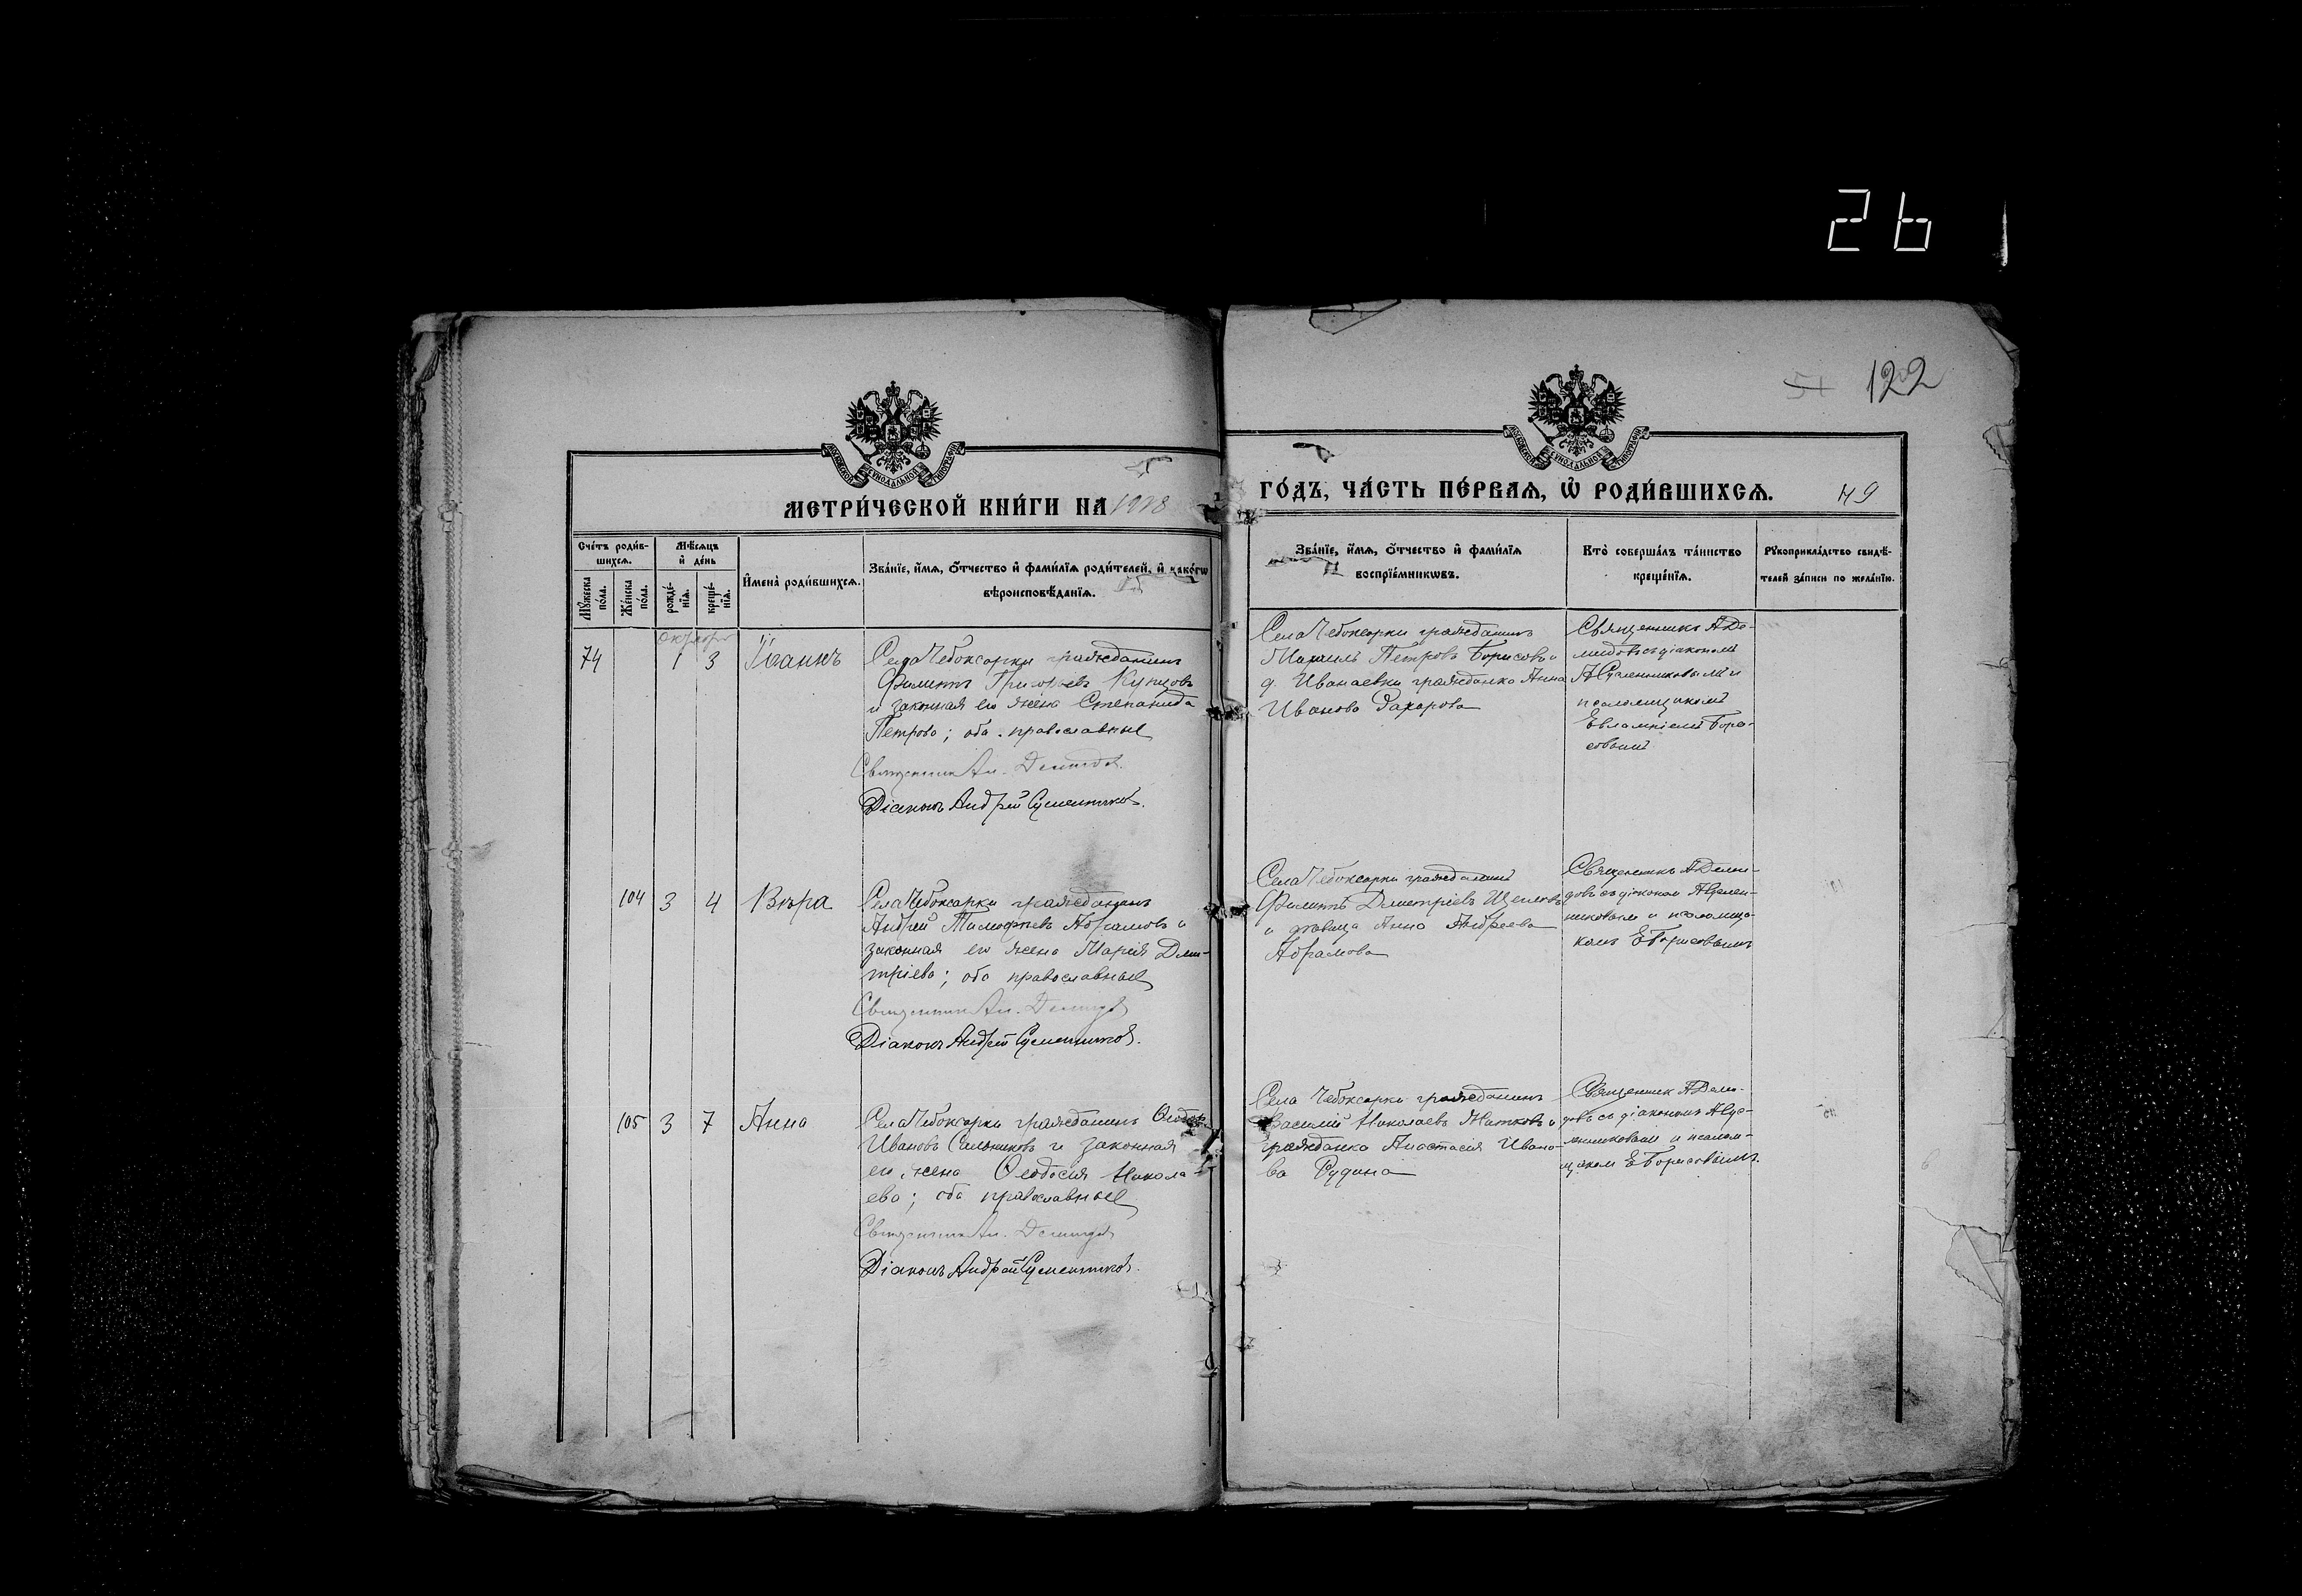 26
122
МЕТРИ́ЧЕСКОЙ КНИ́ГИ НА 1918
ГО́ДЪ, ЧА́СТЬ ПЕ́РВАЯ, Ѡ РОДИ́ВШИХСЯ.
49
Сче́тъ роди́в-
шихся.
Мѣ́сяцъ
и҆ де́нь
Мꙋ́жеска
по́ла.
Же́нска
по́ла.
рожде́-
нїя.
креще́-
нїя.
И҆мена̀ роди́вшихся.
Зва́нїе, и҆́мя, о҆́тчество и҆ фами́лїя роди́телей, и҆ како́гѡ
вѣроисповѣ́данїя.
Зва́нїе, и҆́мя, о҆́тчество и҆ фами́лїя
воспрїе́мникѡвъ.
Кто̀ соверша́лъ та́инство
креще́нїя.
Рꙋкоприкла́дство свидѣ́-
телей за́писи по жела́нїю.
октября
74 1 3 Іоаннъ
Села Чебоксарки гражданинъ
Филиппъ Григорьевъ Купцовъ
и законная его жена Степанида
Петрова; оба православные
Священник Ал. Демидов.
Діаконъ Андрей
Села Чебоксарки гражданинъ
Михаилъ Петровъ Борисовъ и
д. Иванаевки гражданка Анна
Иванова Захарова
Священникъ А Де-
мидовъ съ діакономъ
и
псаломщикомъ
Евлампіемъ Бори-
совымъ
104 3 4 Вѣра
Села Чебоксарки гражданинъ
Андрей Тимофеевъ Абрамовъ и
законная его жена Марія Дми-
тріева; оба православные
Священник Ал. Демидов
Діаконъ Андрей
Села Чебоксарки гражданинъ
Филиппъ Димитріевъ Щегловъ
и дѣвица Анна Андреева
Абрамова
Священникъ А Деми-
довъ съ діакономъ
никовым и псаломщи-
комъ Е Борисовымъ
105 3 7 Анна
Села Чебоксарки гражданинъ Ѳеодоръ
Ивановъ Сальниковъ и законная
его жена Ѳеодосія Никола-
ева; оба православные
Священник Ал. Демидов
Діаконъ Андрей
Села Чебоксарки гражданинъ
Василій Николаевъ и
гражданка Анастасія Ивано-
ва Рудина
Священник А Деми-
довъ съ діакономъ
и псалом-
щиком Е Борисовымъ